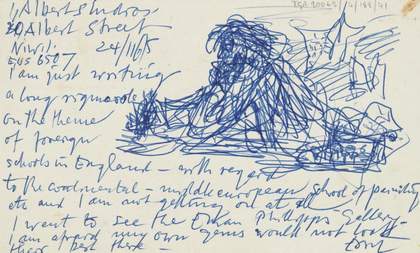 1, Albert Studios
20 Albert Street
N.W.1. 24/11/5
EUS 6507
TGA 20065/4/188/41
I am just writing
a long rigmarole
on the theme
of foreign
schools in England – with regard
to the continental – middle european school of painting
etc and I am not getting out at all
I went to see the Phillipps Gallery –
I am afraid my own gems would not look
their best there –